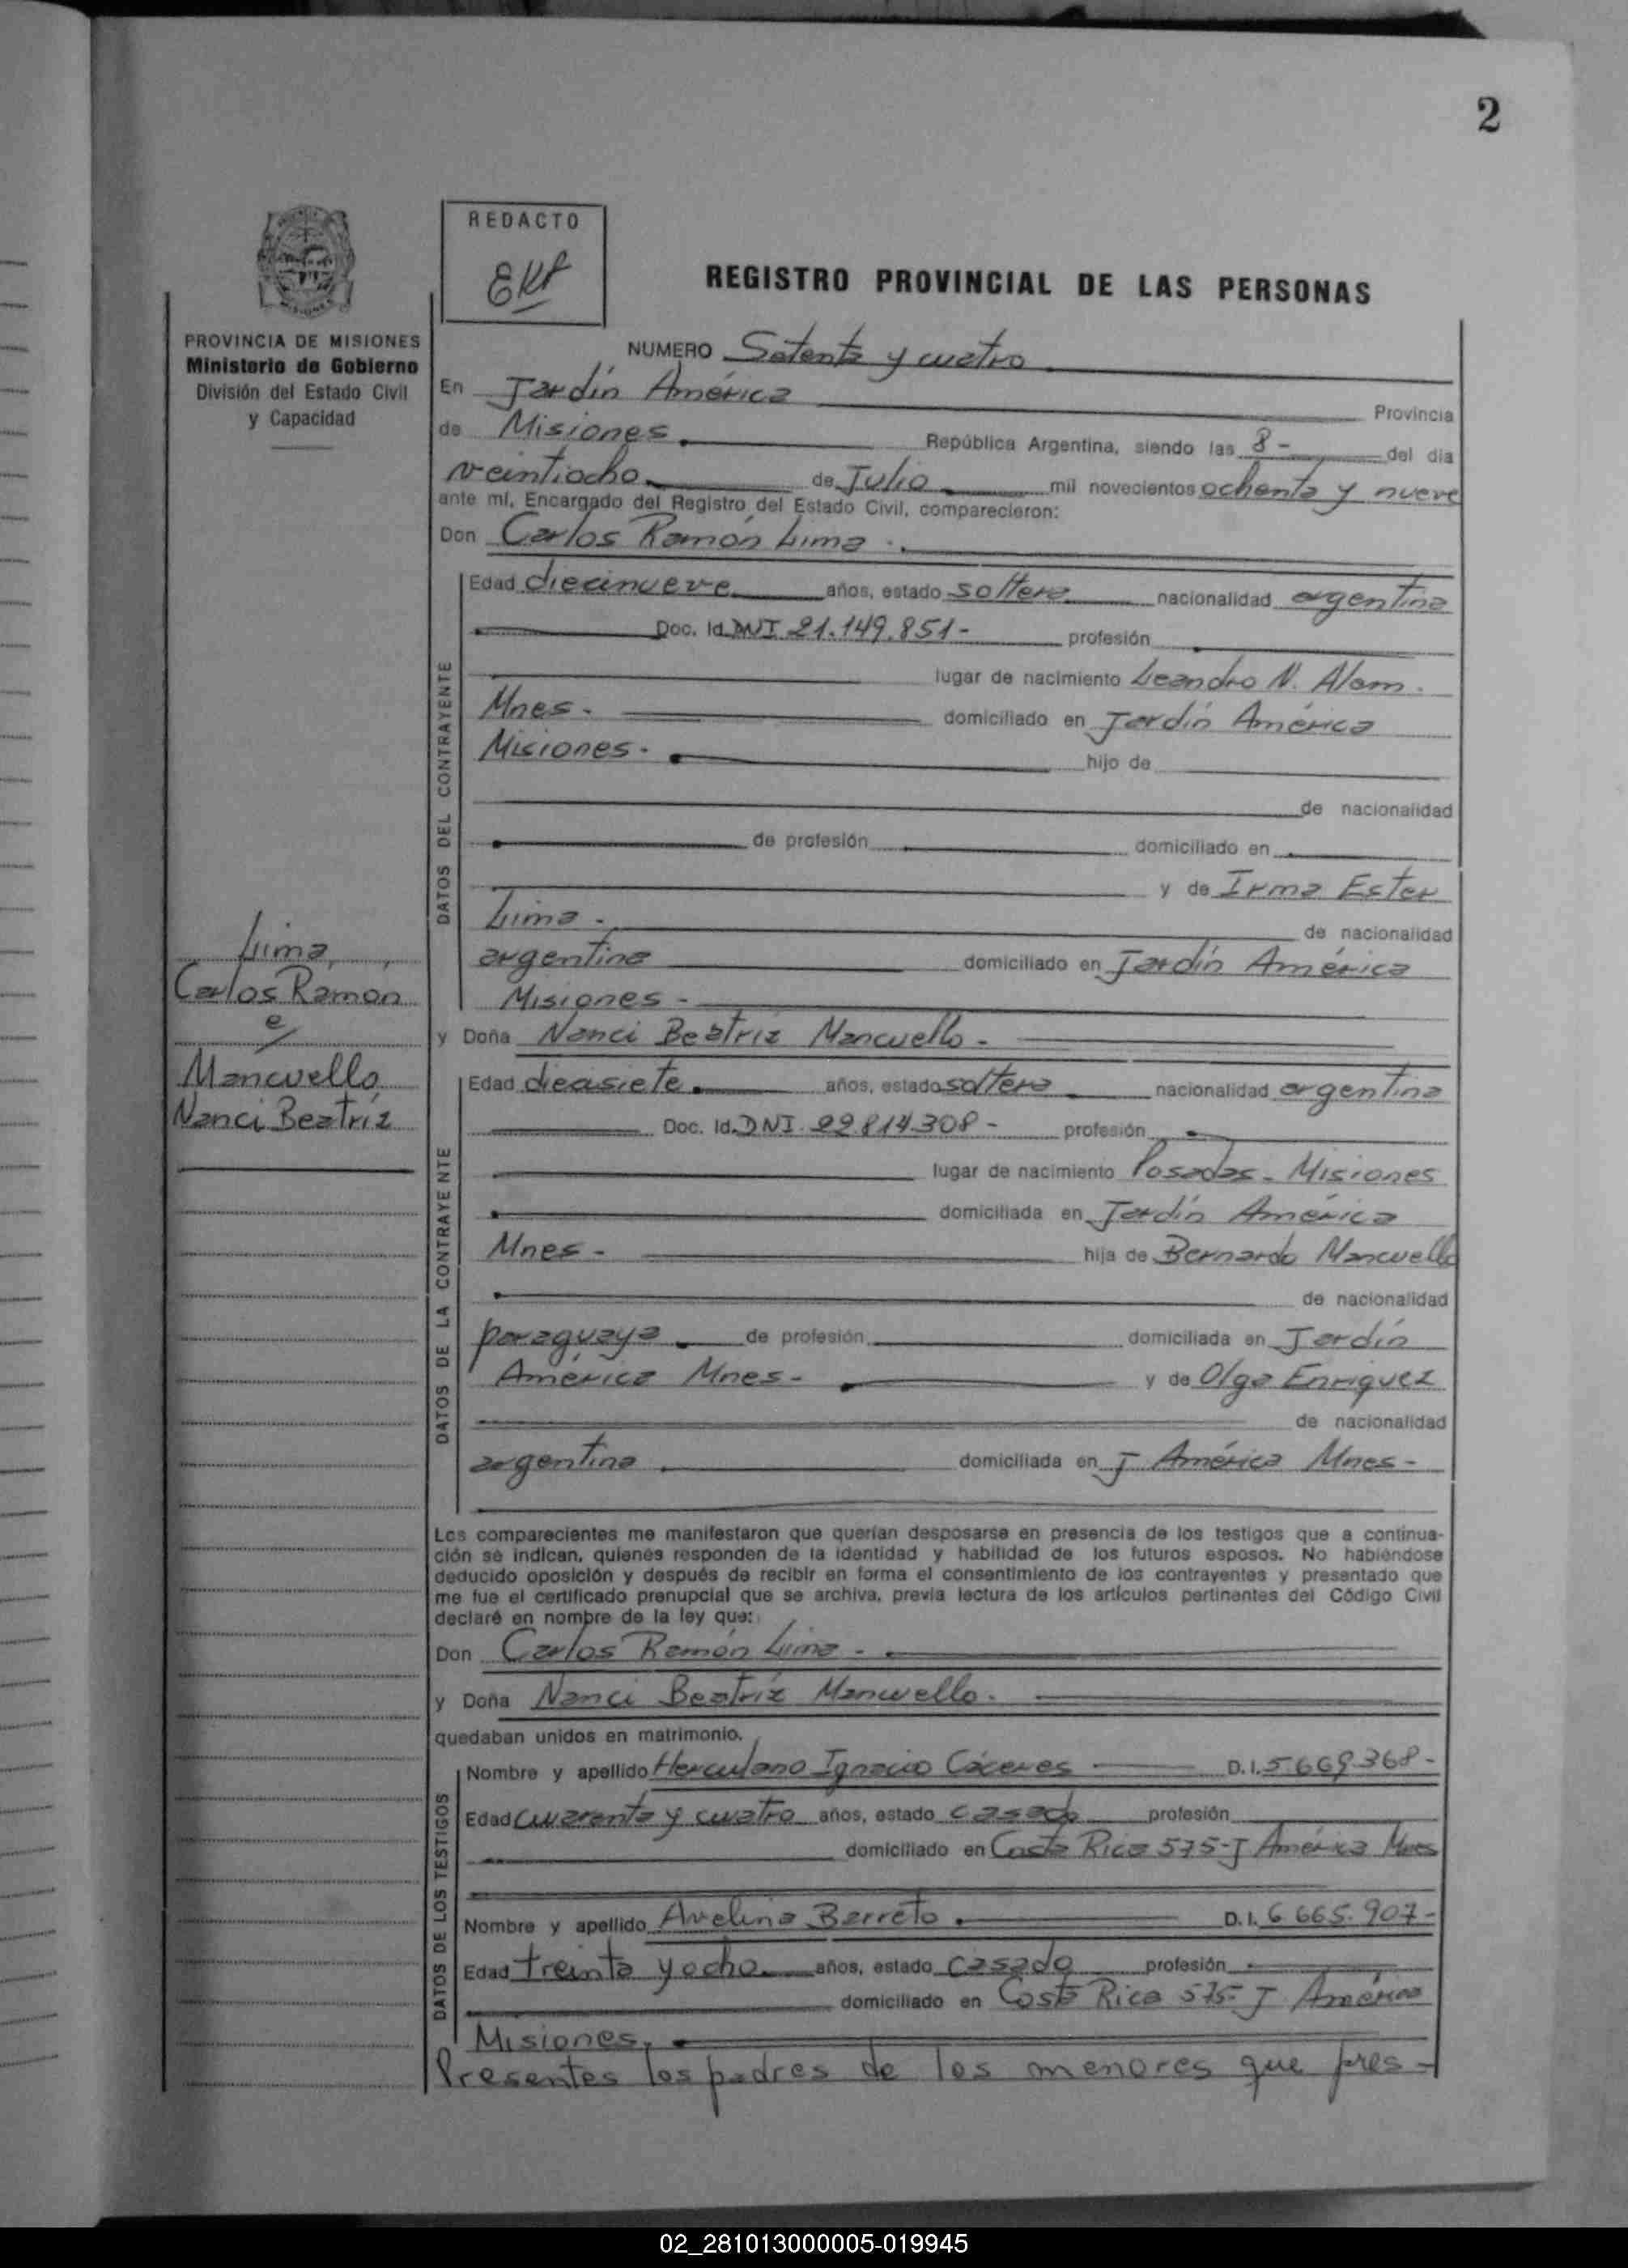 2
REDACTO
REGISTRO PROVINCIAL DE LAS PERSONAS
PROVINCIA DE MISIONES
Ministerio de Gobierno
División del Estado Civil
y Capacidad
NUMERO Setenta y cuatro
En Jardín América Provincia
de Misiones. República Argentina, siendo las 8- del día
veintiocho de Julio mil novecientos ochenta y nueve
ante mí, Encargado del Registro del Estado Civil, comparecieron:
Don Carlos Ramón Lima.
DATOS DEL CONTRAYENTE
Edad diecinueve años, estado soltero nacionalidad argentina
Doc. Id. DNI 21.149.851- profesión
lugar de nacimiento Leandro N. Alem.
Mnes. domiciliado en Jardín América
Misiones. hijo de
de nacionalidad
de profesión domiciliado en
y de Irma Ester
Lima. de nacionalidad
argentina domiciliado en Jardín América
Misiones-
Lima,
Carlos Ramon
e/
Mancuello
Nanci Beatríz
y Doña Nanci Beatriz Mancuello-
DATOS DE LA CONTRAYENTE
Edad diecisiete años, estado soltera nacionalidad argentina
Doc. Id. DNI. 22.814.308- profesión
lugar de nacimiento Posadas- Misiones
domiciliada en Jardín América
Mnes- hija de Bernardo Mancuello
de nacionalidad
paraguaya de profesión domiciliada en Jardín
América Mnes- y de Olga Enriquez
de nacionalidad
argentina domiciliada en J América Mnes-
Los comparecientes me manifestaron que querían desposarse en presencia de los testigos que a continua-
ción se indican, quienes responden de la identidad y habilidad de los futuros esposos. No habiéndose
deducido oposición y después de recibir en forma el consentimiento de los contrayentes y presentado que
me fue el certificado prenupcial que se archiva, previa lectura de los artículos pertinentes del Código Civil
declaré en nombre de la ley que:
Don Carlos Ramón Lima-
y Doña Nanci Beatríz Mancuello.
quedaban unidos en matrimonio.
DATOS DE LOS TESTIGOS
Nombre y apellido Herculano Ignacio Cáceres D.I. 5.669.368-
Edad cuarenta y cuatro años, estado casado profesión
domiciliado en Costa Rica 575-J América Mnes
Nombre y apellido Avelina Barreto. D.I. 6.665.907-
Edad treinta y ocho años, estado casada profesión
domiciliado en Costa Rica 575- J América
Misiones.
Presentes los padres de los menores que pres-
02_281013000005-019945